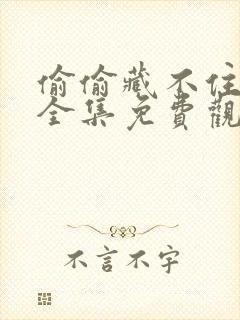 偷偷藏不住
全集免費觀
不言不字